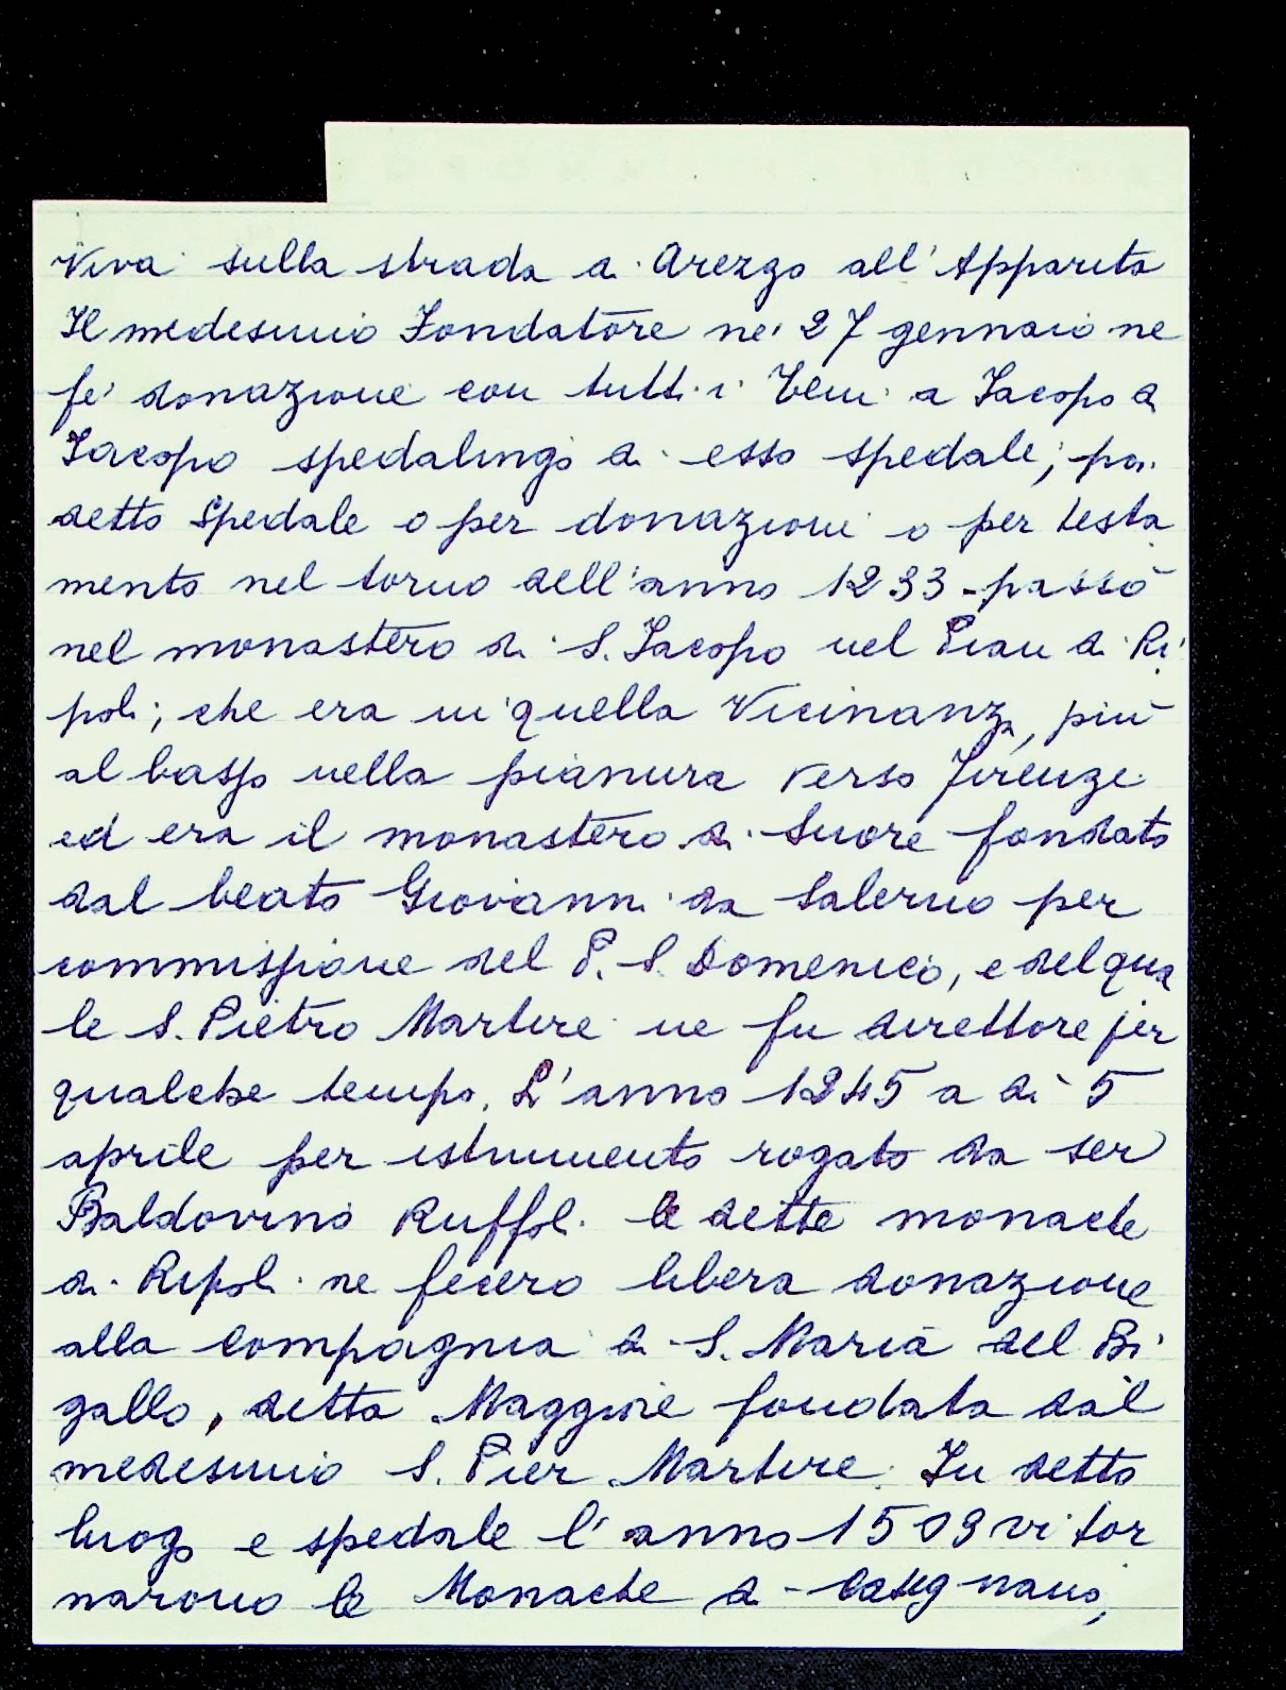 Viva sulla strada di Arezzo all'Apparita
Il medesimo Fondatore ne' 27 gennaio ne
fe' donazione con tutti i beni a Iacopo di
Iacopo spedalingo di esso spedale; poi
detto Spedale o per donazioni o per testa
mento nel torno dell'anno 1233 - passò
nel monastero di S. Iacopo nel Pian di Ri
poli; che era in quella Vicinanza, più
al basso nella pianura verso Firenze
ed era il monastero di Suore fondato
dal beato Giovanni da Salerno per
commissione del P. S. Domenico, e del qua
le S. Pietro Martire ne fu direttore per
qualche tempo. L'anno 1245 a dì 5
aprile per istrumento rogato da ser
Baldovino Ruffoli le dette monache
di Ripoli ne fecero libera donazione
alla Compagnia di S. Maria del Bi
gallo, detta Maggiore fondata dal
medesimo S. Pier Martire. In detto
luogo e spedale l'anno 1509 vi tor
narono le Monache di - Casignano,